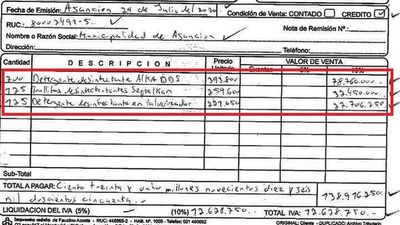 Fecha de Emisión: Asunción 24 de Julio del 2020. Condición de Venta: CONTADO CREDITO
RUC: Nota de Remisión Nº
Nombre o Razón Social: Municipalidad de Asunción
Dirección:
Cantidad DESCRIPCION Precio Unitario VALOR DE VENTA
200 Detergente desinfectante 393.800 78.760.000
125 Toallitas desinfectantes 259.600 32.450.000
125 Detergente desinfectante en pulverizador 221.650 27.706.250
Sub-Total
TOTAL A PAGAR: Ciento treinta y ocho millones novecientos diez y seis 138.916.250
mil doscientos cincuenta
LIQUIDACION DEL IVA (5%) (10%) 12.628.750 TOTAL IVA: 12.628.750
de Faustino Acosta - RUC: - HAB. Nº 1005 - ORIGINAL: Cliente - DUPLICADO: Archivo Tributario